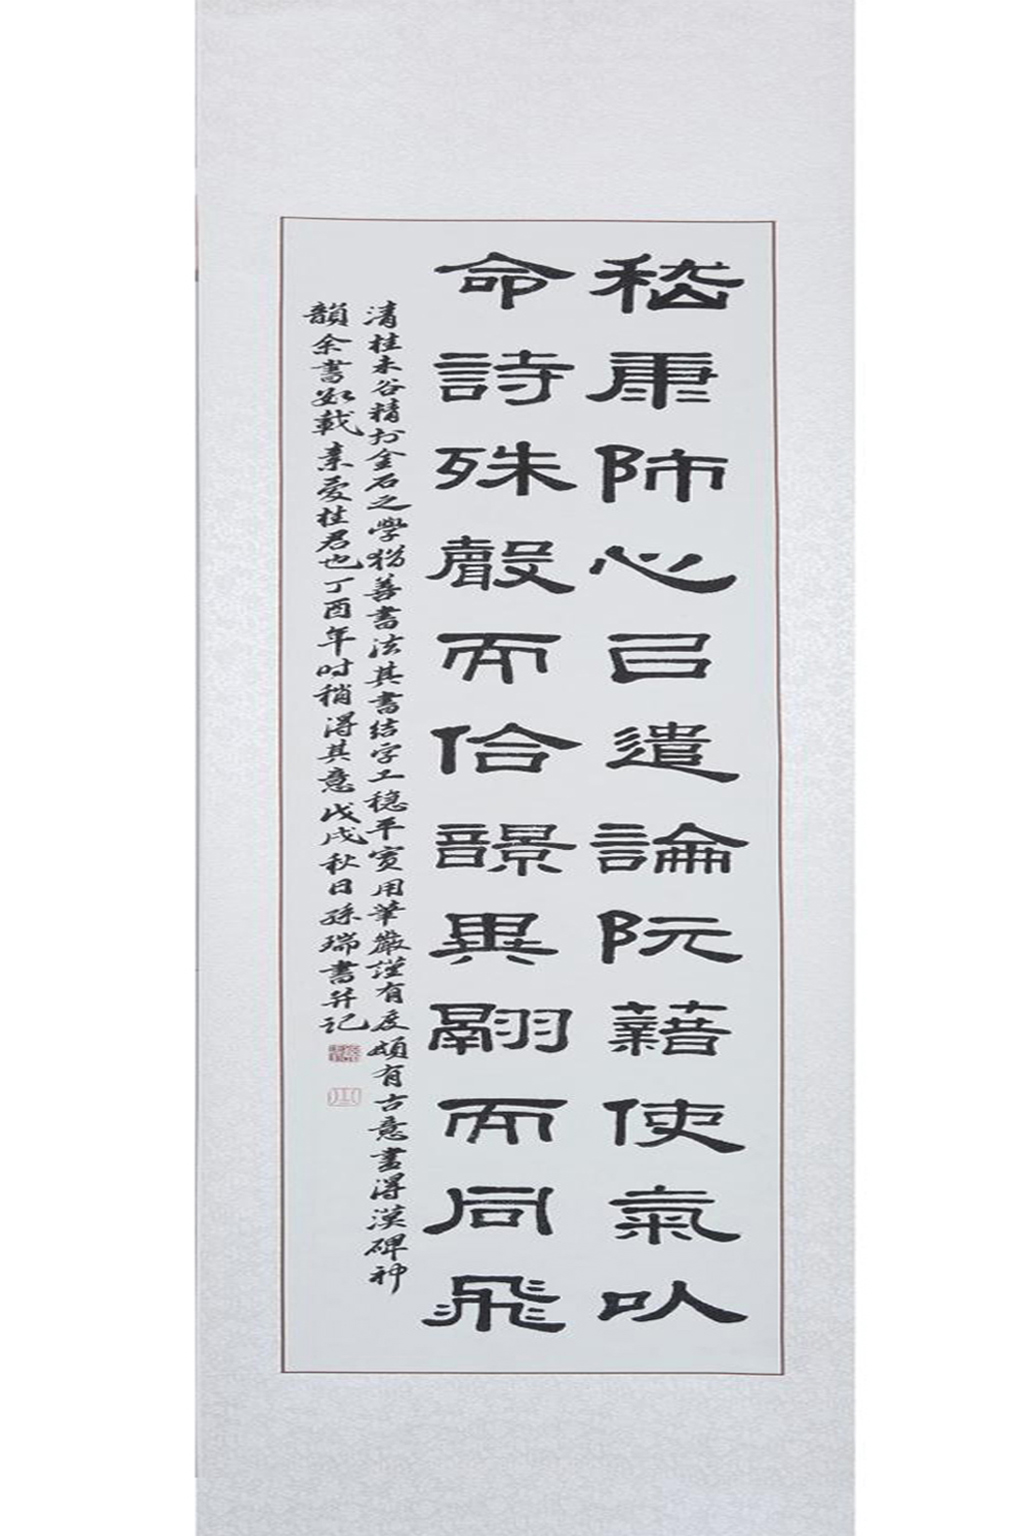 嵇康師心㠯遣論阮藉使氣㕥
命詩殊聲而佮韻異翮而同飛
清桂未谷精於金石之學猶善書法其書結字工穩平實用筆嚴謹有度頗有古意書得漢碑神
韻余書數載素愛桂君也丁酉年时稍得其意戊戌秋日孫瑞書并记